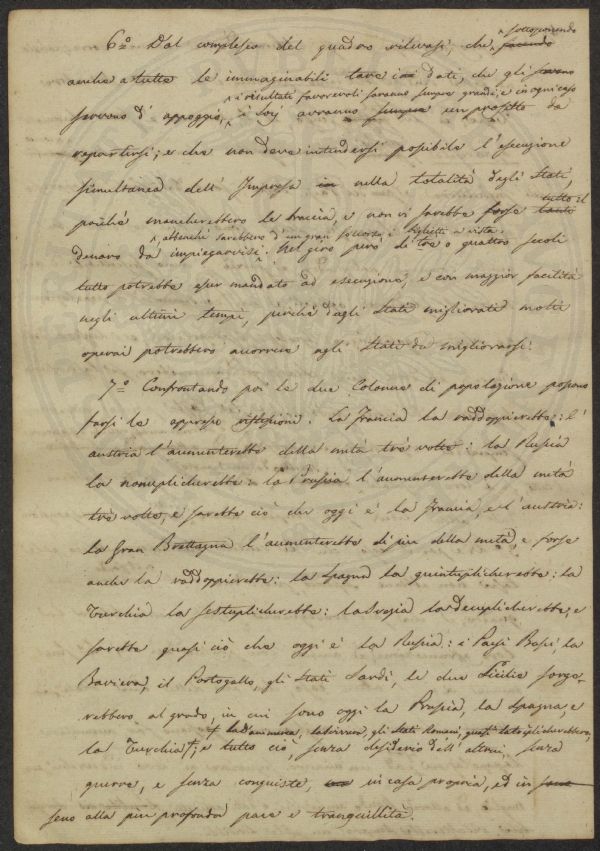 sottoponendo
6.º Dal complesso del quadro rilevasi, che facendo
anche a tutte le immaginabili tare ai dati, che gli
servono d'appoggio, i risultati favorevoli saranno sempre grandi, e in ogni caso
i Socj avranno sempre un profitto da
repartirsi; e che non deve intendersi possibile l'esecuzione
simultanea dell'Impresa in nella totalità degli Stati,
poiché mancherebbero le braccia, e non vi sarebbe forse tanto tutto il
denaro da impiegarvisi, abbenchè sarebbero d'un gran soccorso i biglietti a vista.
Nel giro però di tre o quattro secoli
tutto potrebbe esser mandato ad esecuzione, e con maggior facilità
negli ultimi tempi, perchè dagli Stati migliorati molti
operai potrebbero accorrere agli Stati da migliorarsi.
7.º Confrontando poi le due Colonne di popolazione possono
farsi le appresso riflessioni. La Francia la raddoppierebbe: l'
austria l'aumenterebbe della metà trè volte: la Russia
la nonuplicherebbe: la Prussia l'aumenterebbe della metà
trè volte, e sarebbe ciò che oggi è la Francia, e l'austria:
la Gran Brettagna l'aumenterebbe di più della metà, e forse
anche la raddoppierebbe: la Spagna la quintuplicherebbe: la
Turchia la sestuplicherebbe: la Svezia la decuplicherebbe, e
sarebbe quasi ciò che oggi è la Russia: i Paesi Bassi, la
Baviera, il Portogallo, gli Stati Sardi, le due Sicilie sorge-
rebbero al grado, in cui sono oggi la Prussia, la Spagna, e
la Danimarca, la Svizzera, gli Stati Romani, quasi la triplicherebbero,
la Turchia; e tutto ciò, senza desiderio dell'altrui, senza
guerre, e senza conquiste, in casa propria, ed in
seno alla più profonda pace e tranquillità.